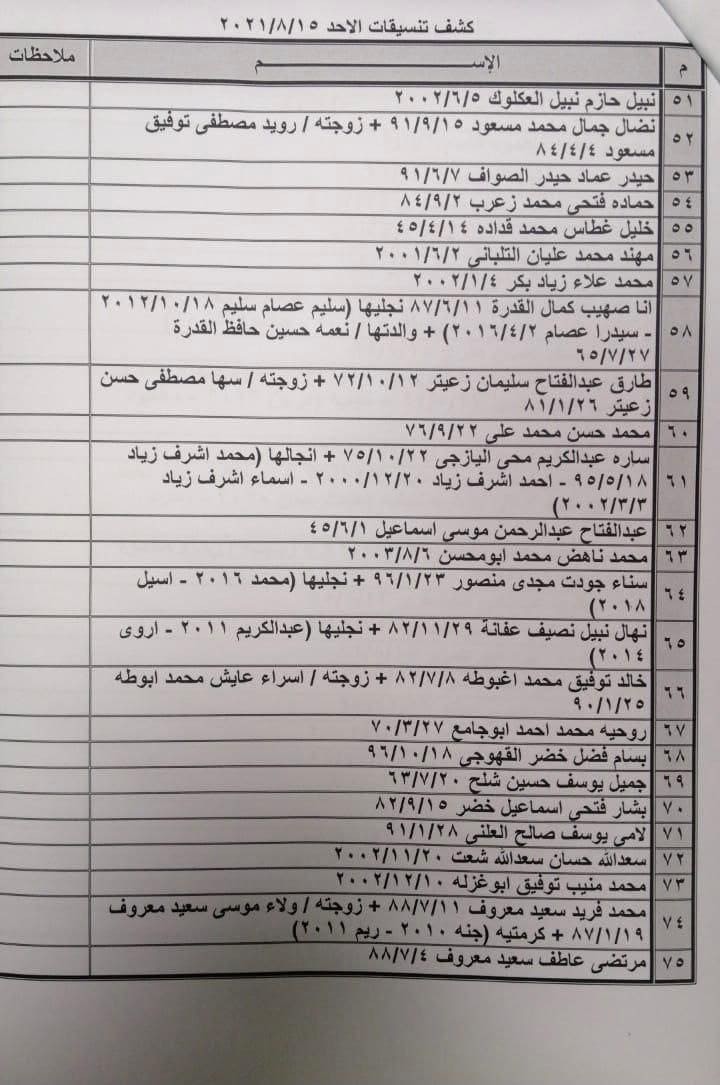 كشف تنسيقات الاحد ٢٠٢١/٨/١٥
م الإســـــم ملاحظات
٥١ نبيل حازم نبيل العكلوك ٢٠٠٢/٦/٥
٥٢ نضال جمال محمد مسعود ٩١/٩/١٥ + زوجته / رويد مصطفى توفيق
مسعود ٨٤/٤/٤
٥٣ حيدر عماد حيدر الصواف ٩١/٦/٧
٥٤ حماده فتحى محمد زعرب ٨٤/٩/٢
٥٥ خليل غطاس محمد قداده ٤٥/٤/١٤
٥٦ مهند محمد عليان التلبانى ٢٠٠١/٦/٢
٥٧ محمد علاء زياد بكر ٢٠٠٢/١/٤
٥٨ انا صهيب كمال القدرة ٨٧/٦/١١ نجليها (سليم عصام سليم ٢٠١٢/١٠/١٨
- سيدرا عصام ٢٠١٦/٤/٢) + والدتها / نعمه حسين حافظ القدرة
٦٥/٧/٢٧
٥٩ طارق عبدالفتاح سليمان زعيتر ٧٢/١٠/١٢ + زوجته / سها مصطفى حسن
زعيتر ٨١/١/٢٦
٦٠ محمد حسن محمد على ٧٦/٩/٢٢
٦١ ساره عبدالكريم محى اليازجى ٧٥/١٠/٢٢ + انجالها (محمد اشرف زياد
٩٥/٥/١٨ - احمد اشرف زياد ٢٠٠٠/١٢/٢٠ - اسماء اشرف زياد
٢٠٠٢/٣/٣)
٦٢ عبدالفتاح عبدالرحمن موسى اسماعيل ٤٥/٦/١
٦٣ محمد ناهض محمد ابومحسن ٢٠٠٣/٨/٦
٦٤ سناء جودت مجدى منصور ٩٦/١/٢٣ + نجليها (محمد ٢٠١٦ - اسيل
٢٠١٨)
٦٥ نهال نبيل نصيف عفانة ٨٢/١١/٢٩ + نجليها (عبدالكريم ٢٠١١ - اروى
٢٠١٤)
٦٦ خالد توفيق محمد اغبوطه ٨٢/٧/٨ + زوجته / اسراء عايش محمد ابوطه
٩٠/١/٢٥
٦٧ روحيه محمد احمد ابوجامع ٧٠/٣/٢٧
٦٨ بسام فضل خضر القهوجى ٩٦/١٠/١٨
٦٩ جميل يوسف حسين شلح ٦٣/٧/٢٠
٧٠ بشار فتحى اسماعيل خضر ٨٢/٩/١٥
٧١ لامى يوسف صالح العلنى ٩١/١/٢٨
٧٢ سعدالله حسان سعدالله شعت ٢٠٠٢/١١/٢٠
٧٣ محمد منيب توفيق ابوغزله ٢٠٠٢/١٢/١٠
٧٤ محمد فريد سعيد معروف ٨٨/٧/١١ + زوجته / ولاء موسى سعيد معروف
٨٧/١/١٩ + كرمتيه (جنه ٢٠١٠ - ريم ٢٠١١)
٧٥ مرتضى عاطف سعيد معروف ٨٨/٧/٤